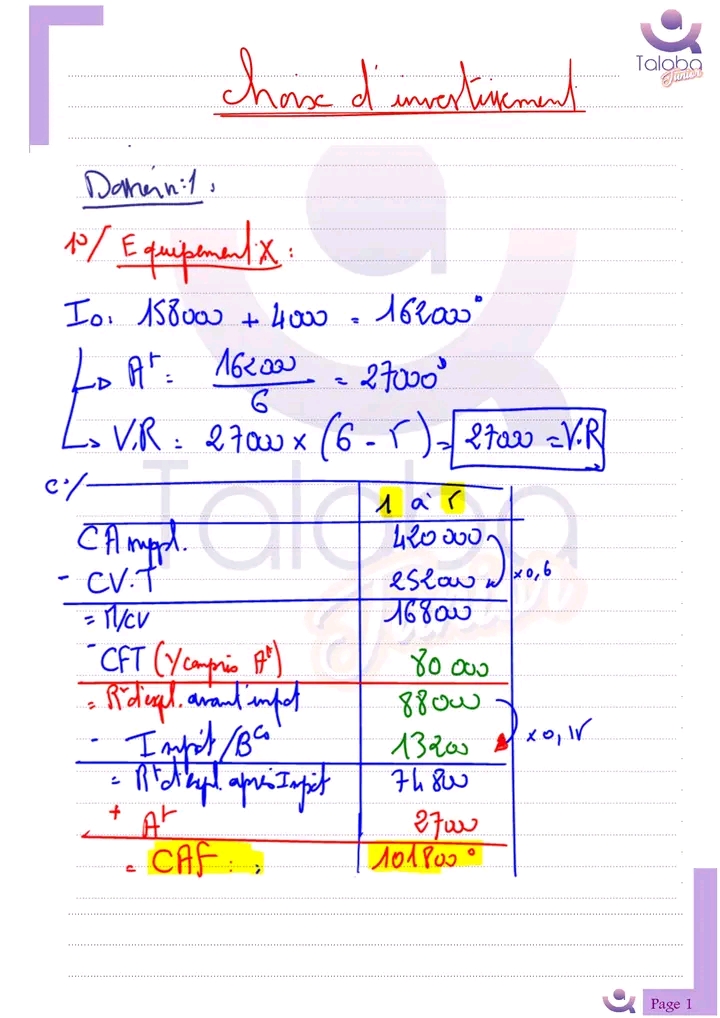 Taloba
Junior
Choix d'investissement
1°/ Equipement X :
I0: 158000 + 4000 = 162000
At = 162000 / 6 = 27000
V.R = 27000 x (6 - 5) = 27000 = V.R
1 à 5
CA suppl. 420 000
- CV.T 252000 x0,6
= M/CV 168000
- CFT (y compris At) 80 000
= Rt d'expl. avant impôt 88000
- Impôt/Bce 13200 x 0,15
= Rt d'expl. après Impôt 74 800
+ At 27000
= CAF : 101800
Taloba
Junior
Page 1